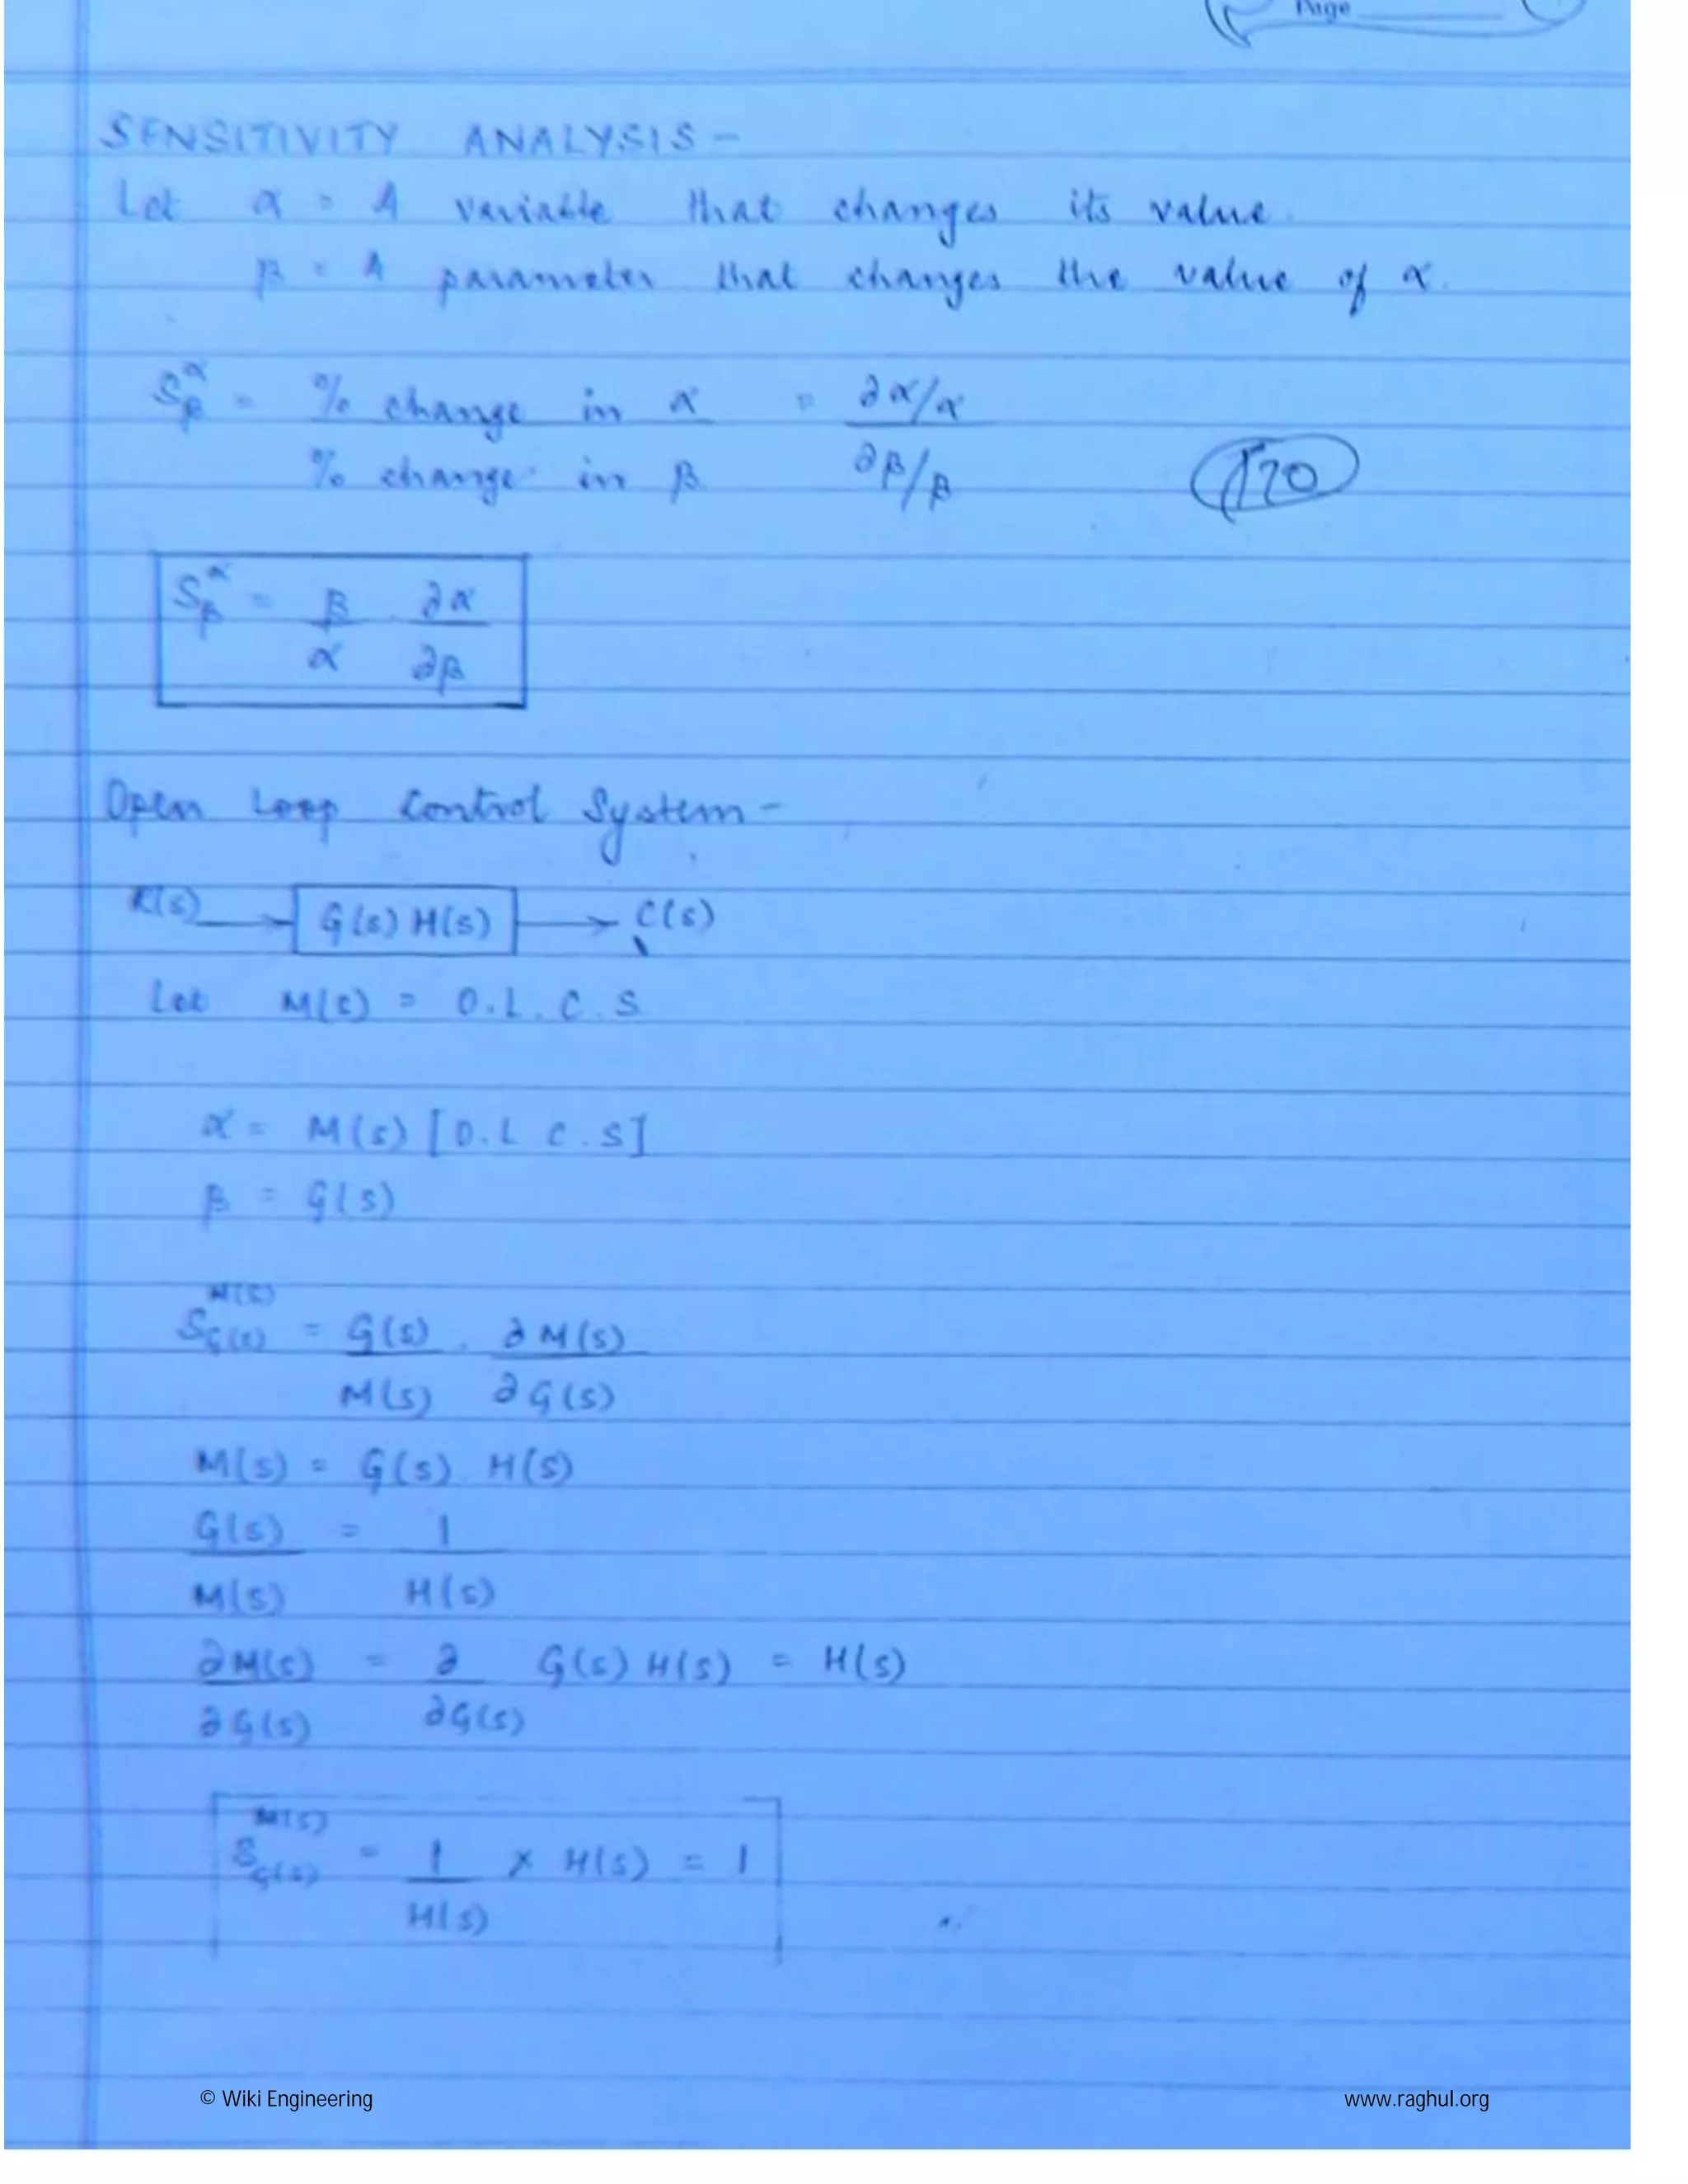 Page
SENSITIVITY ANALYSIS -
Let α = A variable that changes its value.
β = A parameter that changes the value of α.
S^α_β = % change in α / % change in β = ∂α/α / ∂β/β
170
S^α_β = β/α . ∂α/∂β
Open Loop Control System -
R(s) → G(s) H(s) → C(s)
Let M(s) = O.L.C.S
α = M(s) [O.L C.S]
β = G(s)
S^M(s)_G(s) = G(s)/M(s) . ∂M(s)/∂G(s)
M(s) = G(s) H(s)
G(s)/M(s) = 1/H(s)
∂M(s)/∂G(s) = ∂/∂G(s) G(s) H(s) = H(s)
S^M(s)_G(s) = 1/H(s) × H(s) = 1
© Wiki Engineering
www.raghul.org